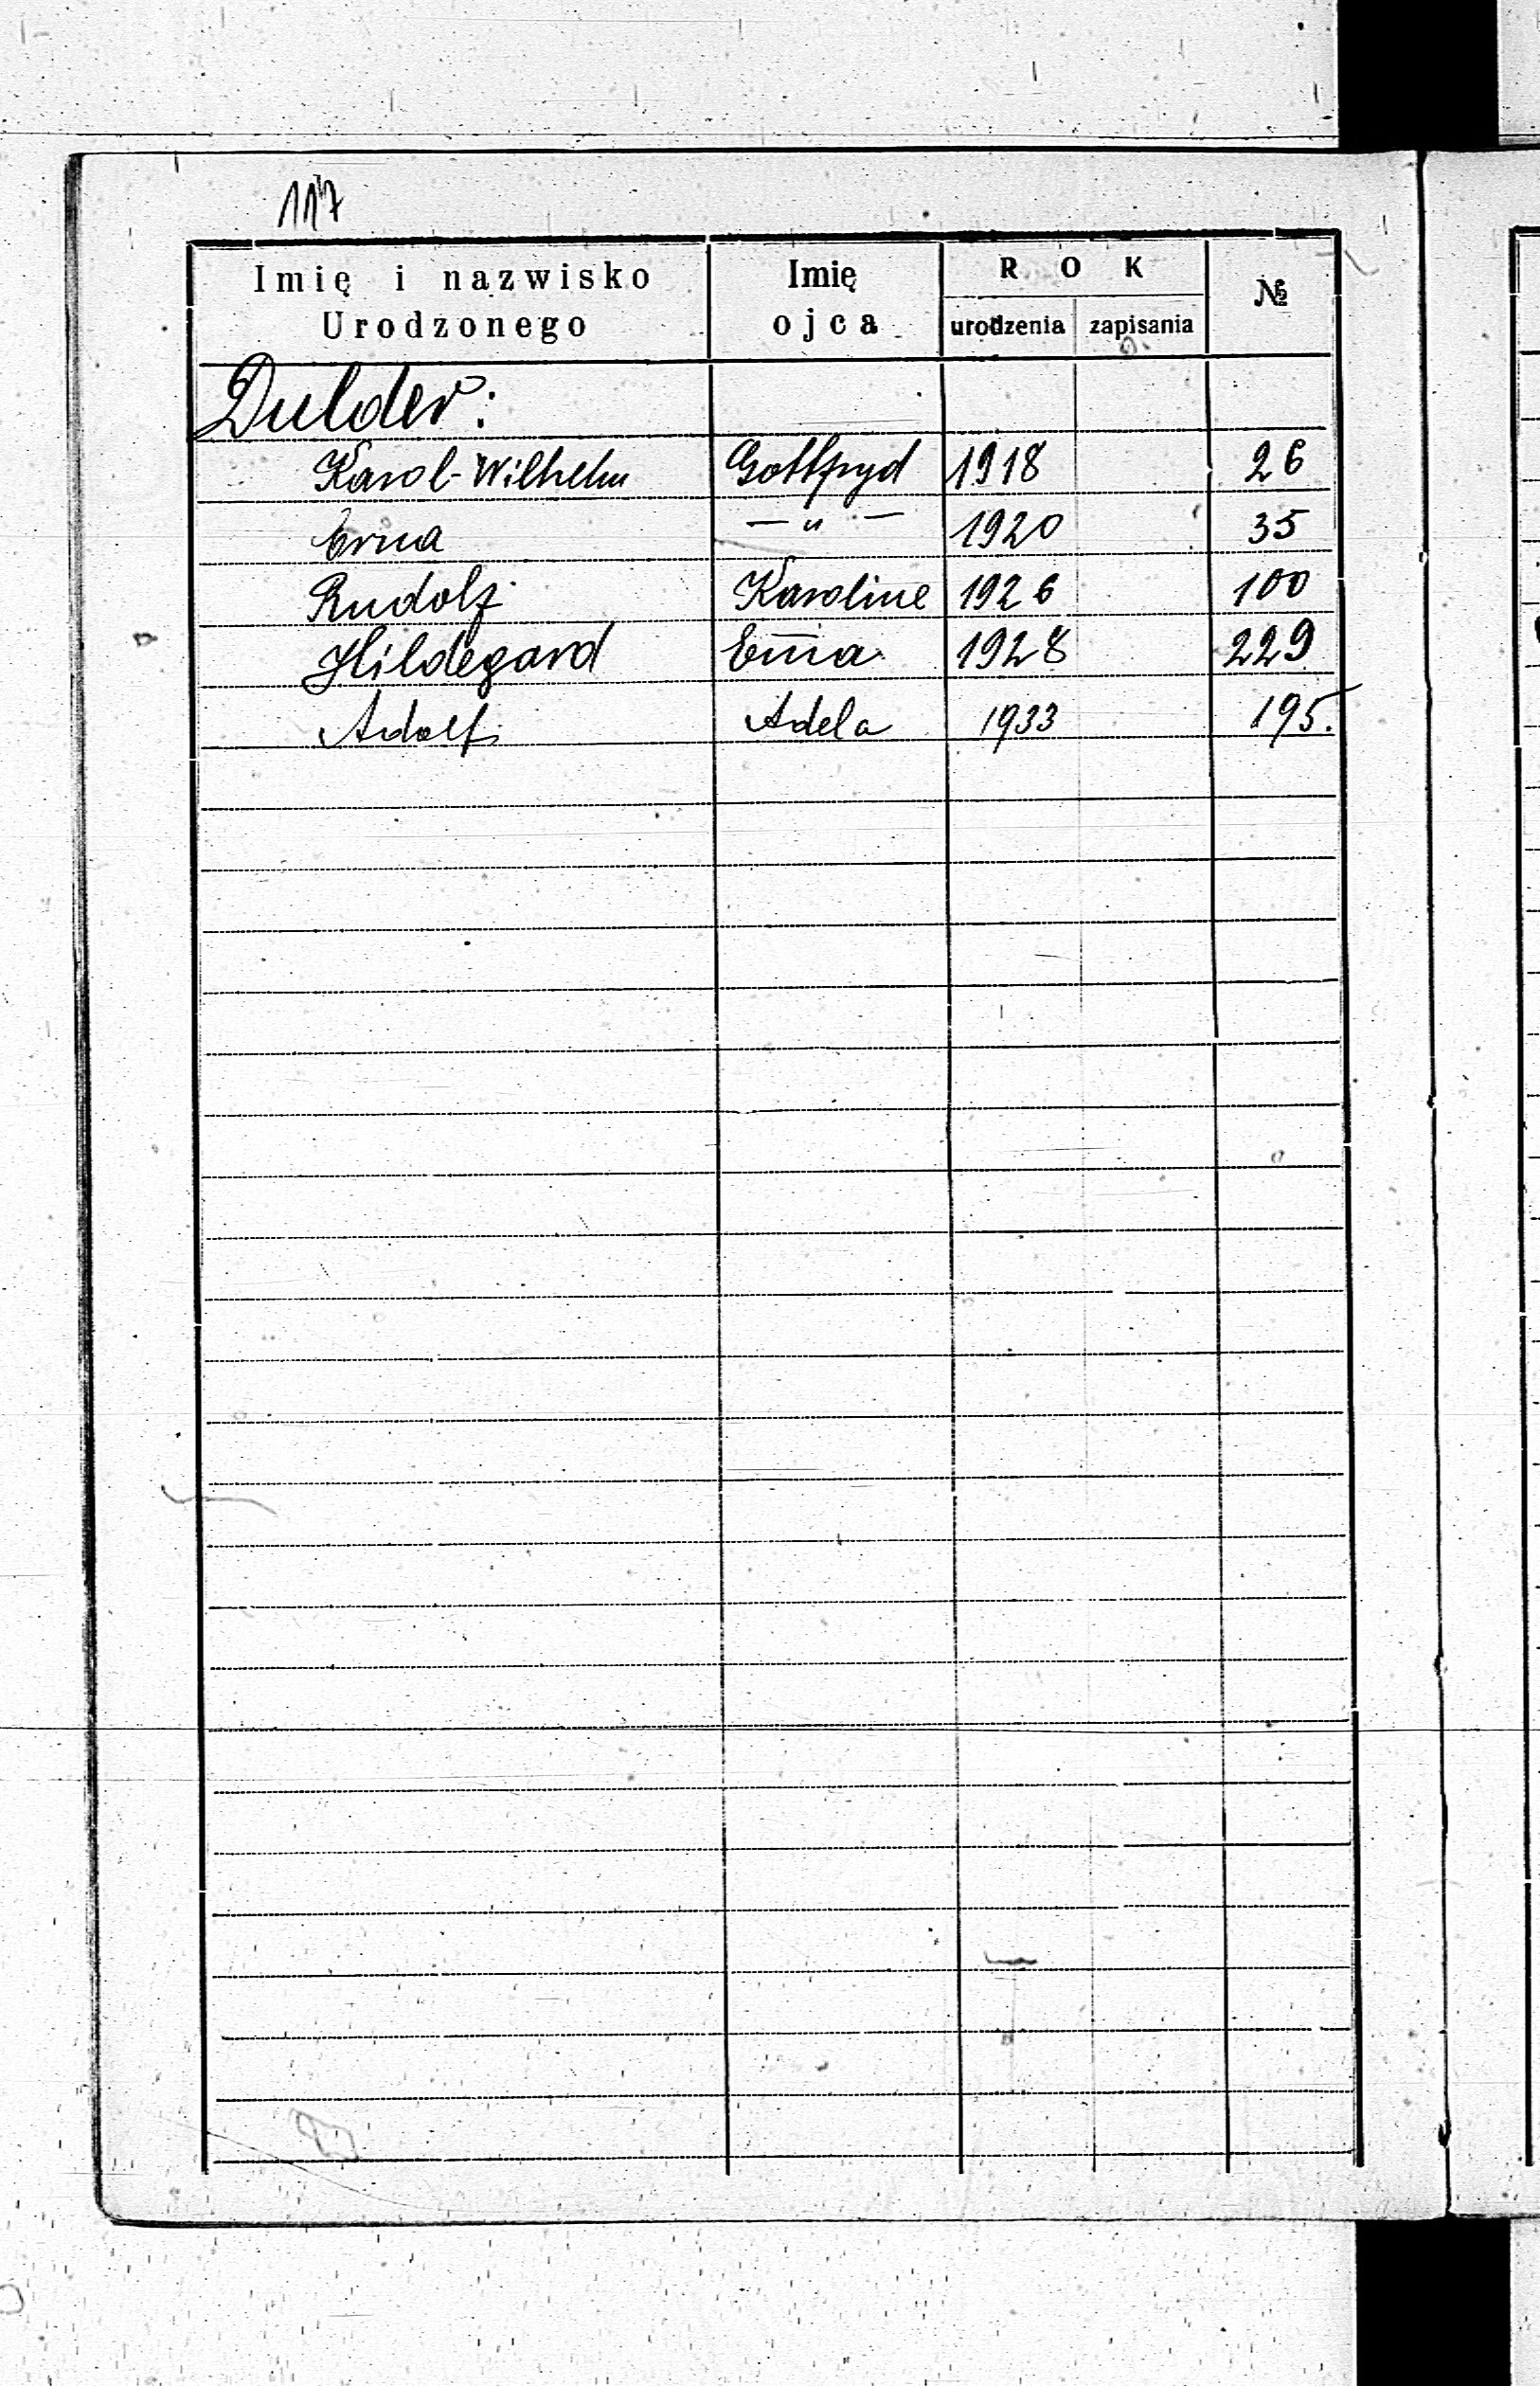 117
Imię i nazwisko Urodzonego Imię ojca ROK urodzenia zapisania №
Dulder:
Karol-Wilhelm Gottfryd 1918 26
Erna — " — 1920 35
Rudolf Karoline 1926 100
Hildegard Em̅a 1928 229
Adolf Adela 1933 195.